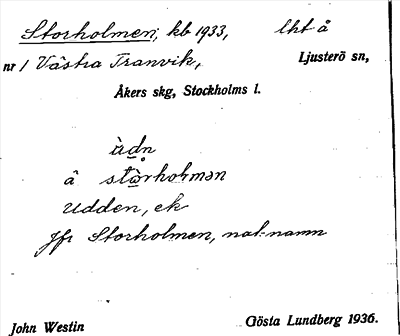 Storholmen, kb 1933, lht å
nr 1 Västra Tranvik, Ljusterö sn,
Åkers skg, Stockholms l.
ùdn
å stòrholmən
Udden, ek
Jfr Storholmen, nat.namn
John Westin Gösta Lundberg 1936.